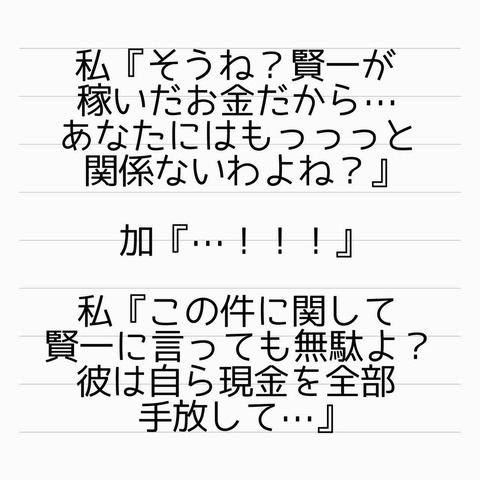 私『そうね？賢一が
稼いだお金だから…
あなたにはもっっっと
関係ないわよね？』
加『…！！！』
私『この件に関して
賢一に言っても無駄よ？
彼は自ら現金を全部
手放して…』